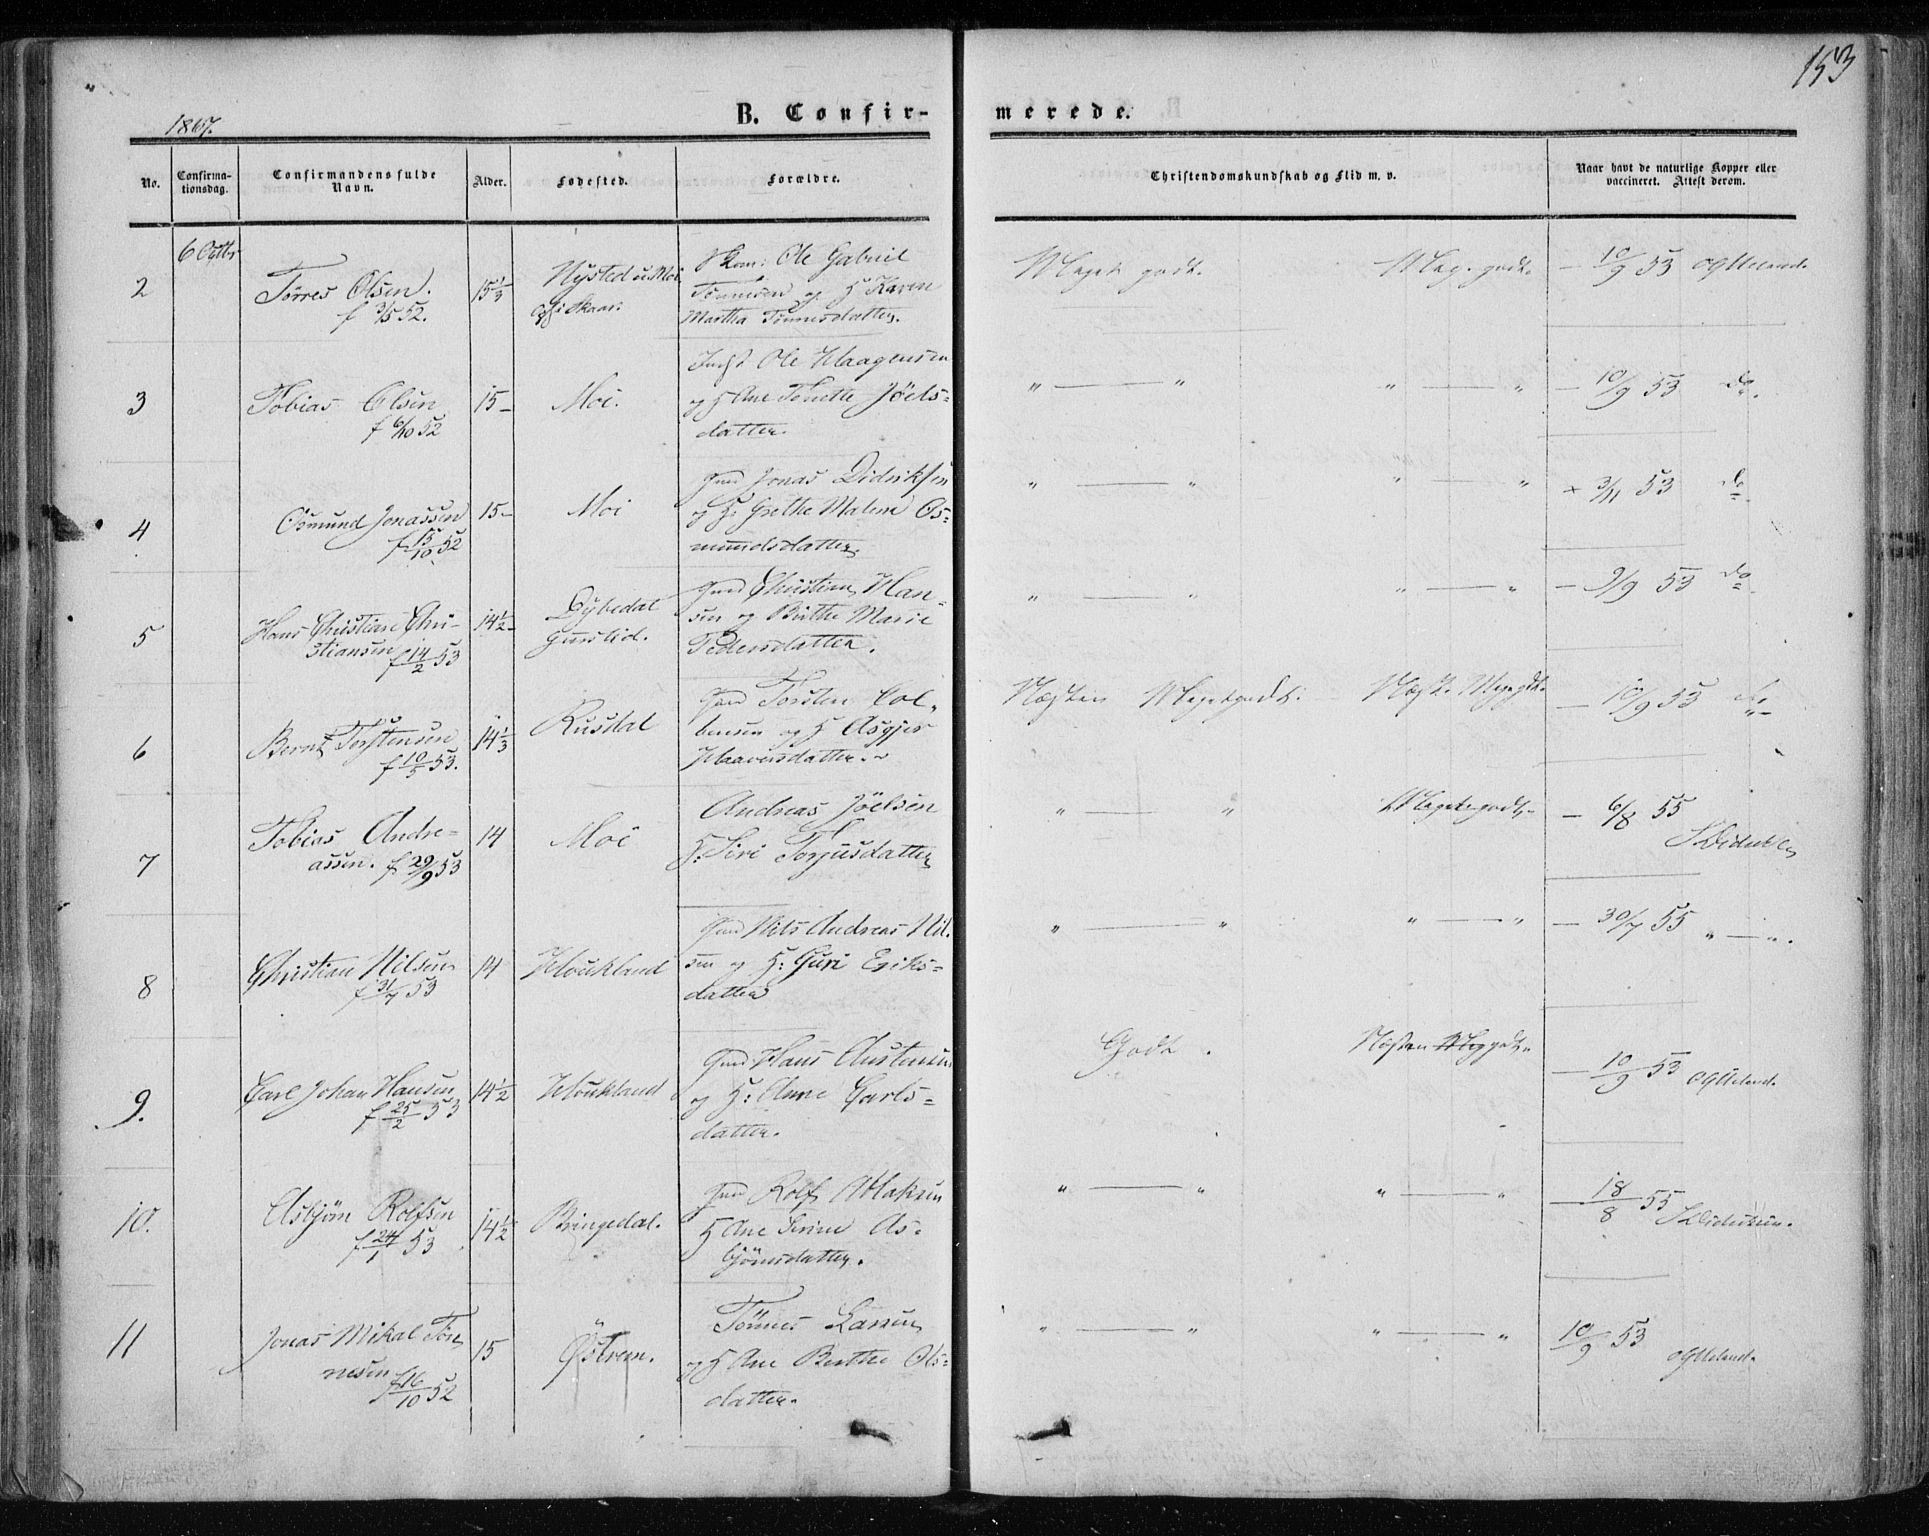 153
1867.
B. Confir-
merede.
No.
Confirma-
tionsdag.
Confirmandens fulde
Navn.
Alder.
Fødested.
Forældre.
Christendomskundskab og Flid m. v.
Naar havt de naturlige Kopper eller
vaccineret. Attest derom.
2
6 Octbr
Tørres Olsen.
f 3/5 52.
15 1/3
Nysted u. Moi
Skaar.
Ole Gabriel
Tønnesen og H Karen
Martha Tønnesdatter.
Meget godt.
Meg. godt.
— 10/9 53 OGUeland.
3
Tobias Olsen
f 6/10 52
15 –
Moi.
Indst Ole Haagensen
og H Ane Tonette Jöels=
datter.
" — "
" — "
— 10/9 53 do.
4
Osmund Jonassen
f 15/10 52
15 –
Moi
Gmd Jonas Didriksen
og H. Grethe Malene Os=
mundsdatter.
" — "
" — "
+ 3/11 53 do
5
Hans Christian Chri-
stiansen f 14/2 53
14 1/2 –
Dybedal
Gmd Christian Han=
sen og Birthe Marie
Pedersdatter.
" — "
" — "
— 9/9 53 do
6
Bernt Torstensen
f 10/5 53.
14 1/3
Rusdal
Gmd Torsten Col=
bensen og H Asgjer
Haaversdatter.
Næsten Megetgodt.
Næst. Meg. gdt.
— 10/9 53 do
7
Tobias Andre-
assen. f 29/9 53
14
Moi
Andreas Jöelsen
H: Siri Torjusdatter
" — "
Megetgodt.
— 6/8 55
SDidriksen
8
Christian Nilsen
f 31/7 53
14
Houkland
Gmd Nils Andreas Nil.
sen og H: Guri Eriks=
datter
" — "
" — "
— 30/7 55 " — ".
9.
Carl Johan Hansen
f 25/2 53
14 1/2
Houkland
Gmd Hans Austensen
og H: Anne Carls=
datter.
Godt.
Næsten Meg gdt.
— 10/9 53 OGUeland.
10.
Asbjørn Rolfsen
f 24/1 53
14 1/2
Bringedal.
Gmd Rolf Aslaksen
H Ane Serine As=
bjørnsdatter.
" — "
" — "
— 18/8 55 SDidriksen.
11
Jonas Mikal Tøn
nesen
f 16/10 52
15
Østrem.
Tønnes Larsen
og H Ane Berthe Ols=
datter.
" — "
" — "
10/9 53
OGUeland.